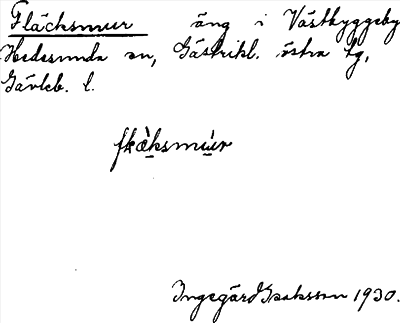 Fläcksmur äng i Västbyggeby
Hedesunda sn, Gästrikl. östra tg,
Gävleb. l.
fkæ̀ksmu̇̀r
Ingegärd Isaksson 1930.